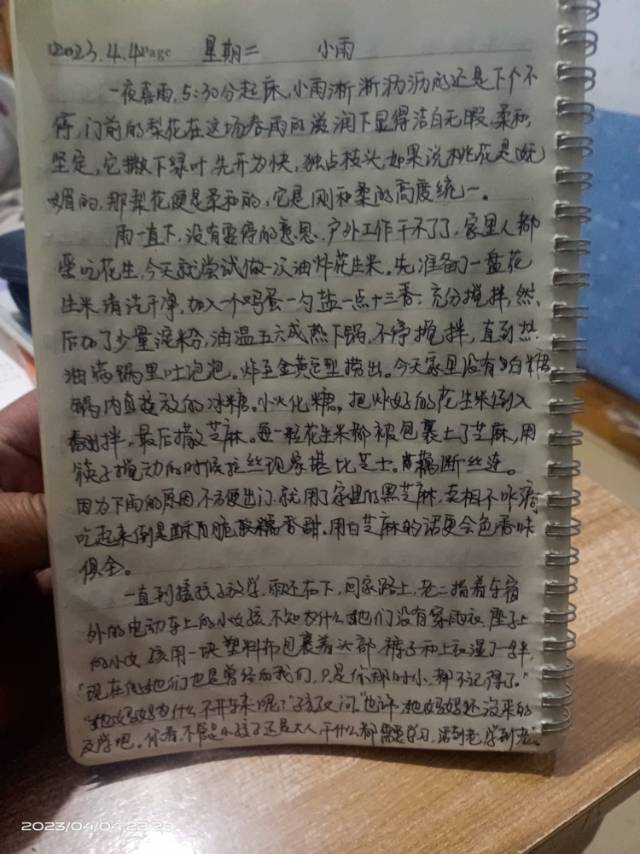 2023.4.4 Page 星期二 小雨
一夜喜雨,5:30分起床,小雨淅淅沥沥的还是下个不
停,门前的梨花在这场春雨的滋润下显得洁白无暇,柔和,
坚定,它撇下绿叶先开为快,独占枝头,如果说桃花是妩
媚的,那梨花便是柔和的,它是刚和柔的高度统一。
雨一直下,没有要停的意思,户外工作干不了了,家里人都
爱吃花生,今天就尝试做一次油炸花生米。先准备了一盘花
生米清洗干净,加入一个鸡蛋一勺盐一点十三香:充分搅拌,然
后加了少量淀粉,油温五六成热下锅,不停搅拌,直到热
油满锅里吐泡泡。炸至金黄色型捞出。今天家里没有白糖
锅内直接放的冰糖。小火化糖,把炸好的花生米倒入
翻拌,最后撒芝麻。每一粒花生米都被包裹上了芝麻,用
筷子搅动的时候拉丝现象堪比芝士。藕断丝连。
因为下雨的原因,不方便出门,就用了家里的黑芝麻,卖相不咋滴
吃起来倒是酥脆香甜。用白芝麻的话更会色香味
俱全。
一直到接孩子放学,雨还在下,回家路上,老二指着车窗
外的电动车上的小女孩,不知为什么她们没有穿雨衣,座上
的小女孩用一块塑料布包裹着头部,裤子和上衣湿了一半,
"现在的她们也是曾经的我们,只是你那时小,都不记得了。"
"她妈妈为什么不开车呢?"孩子又问。"也许她妈妈还没来的
及学吧。你看,不管是小孩子还是大人,干什么都需要学习,活到老,学到老。"
2023/04/04 22:23